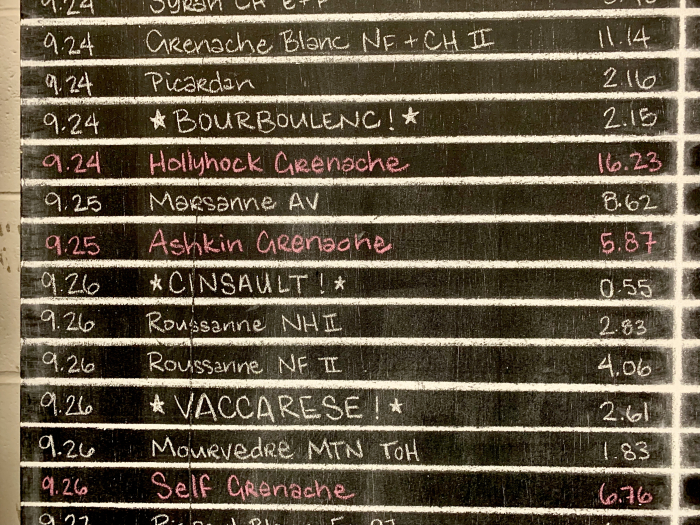 9.24 Syrah CH
9.24 Grenache Blanc NF + CH II 11.14
9.24 Picardan 2.16
9.24 ★ BOURBOULENC! ★ 2.15
9.24 Hollyhock Grenache 16.23
9.25 Marsanne AV 8.62
9.25 Ashkin Grenache 5.87
9.26 ★ CINSAULT! ★ 0.55
9.26 Roussanne NH II 2.83
9.26 Roussanne NF II 4.06
9.26 ★ VACCARESE! ★ 2.61
9.26 Mourvedre MTN TOH 1.83
9.26 Self Grenache 6.76
9.27